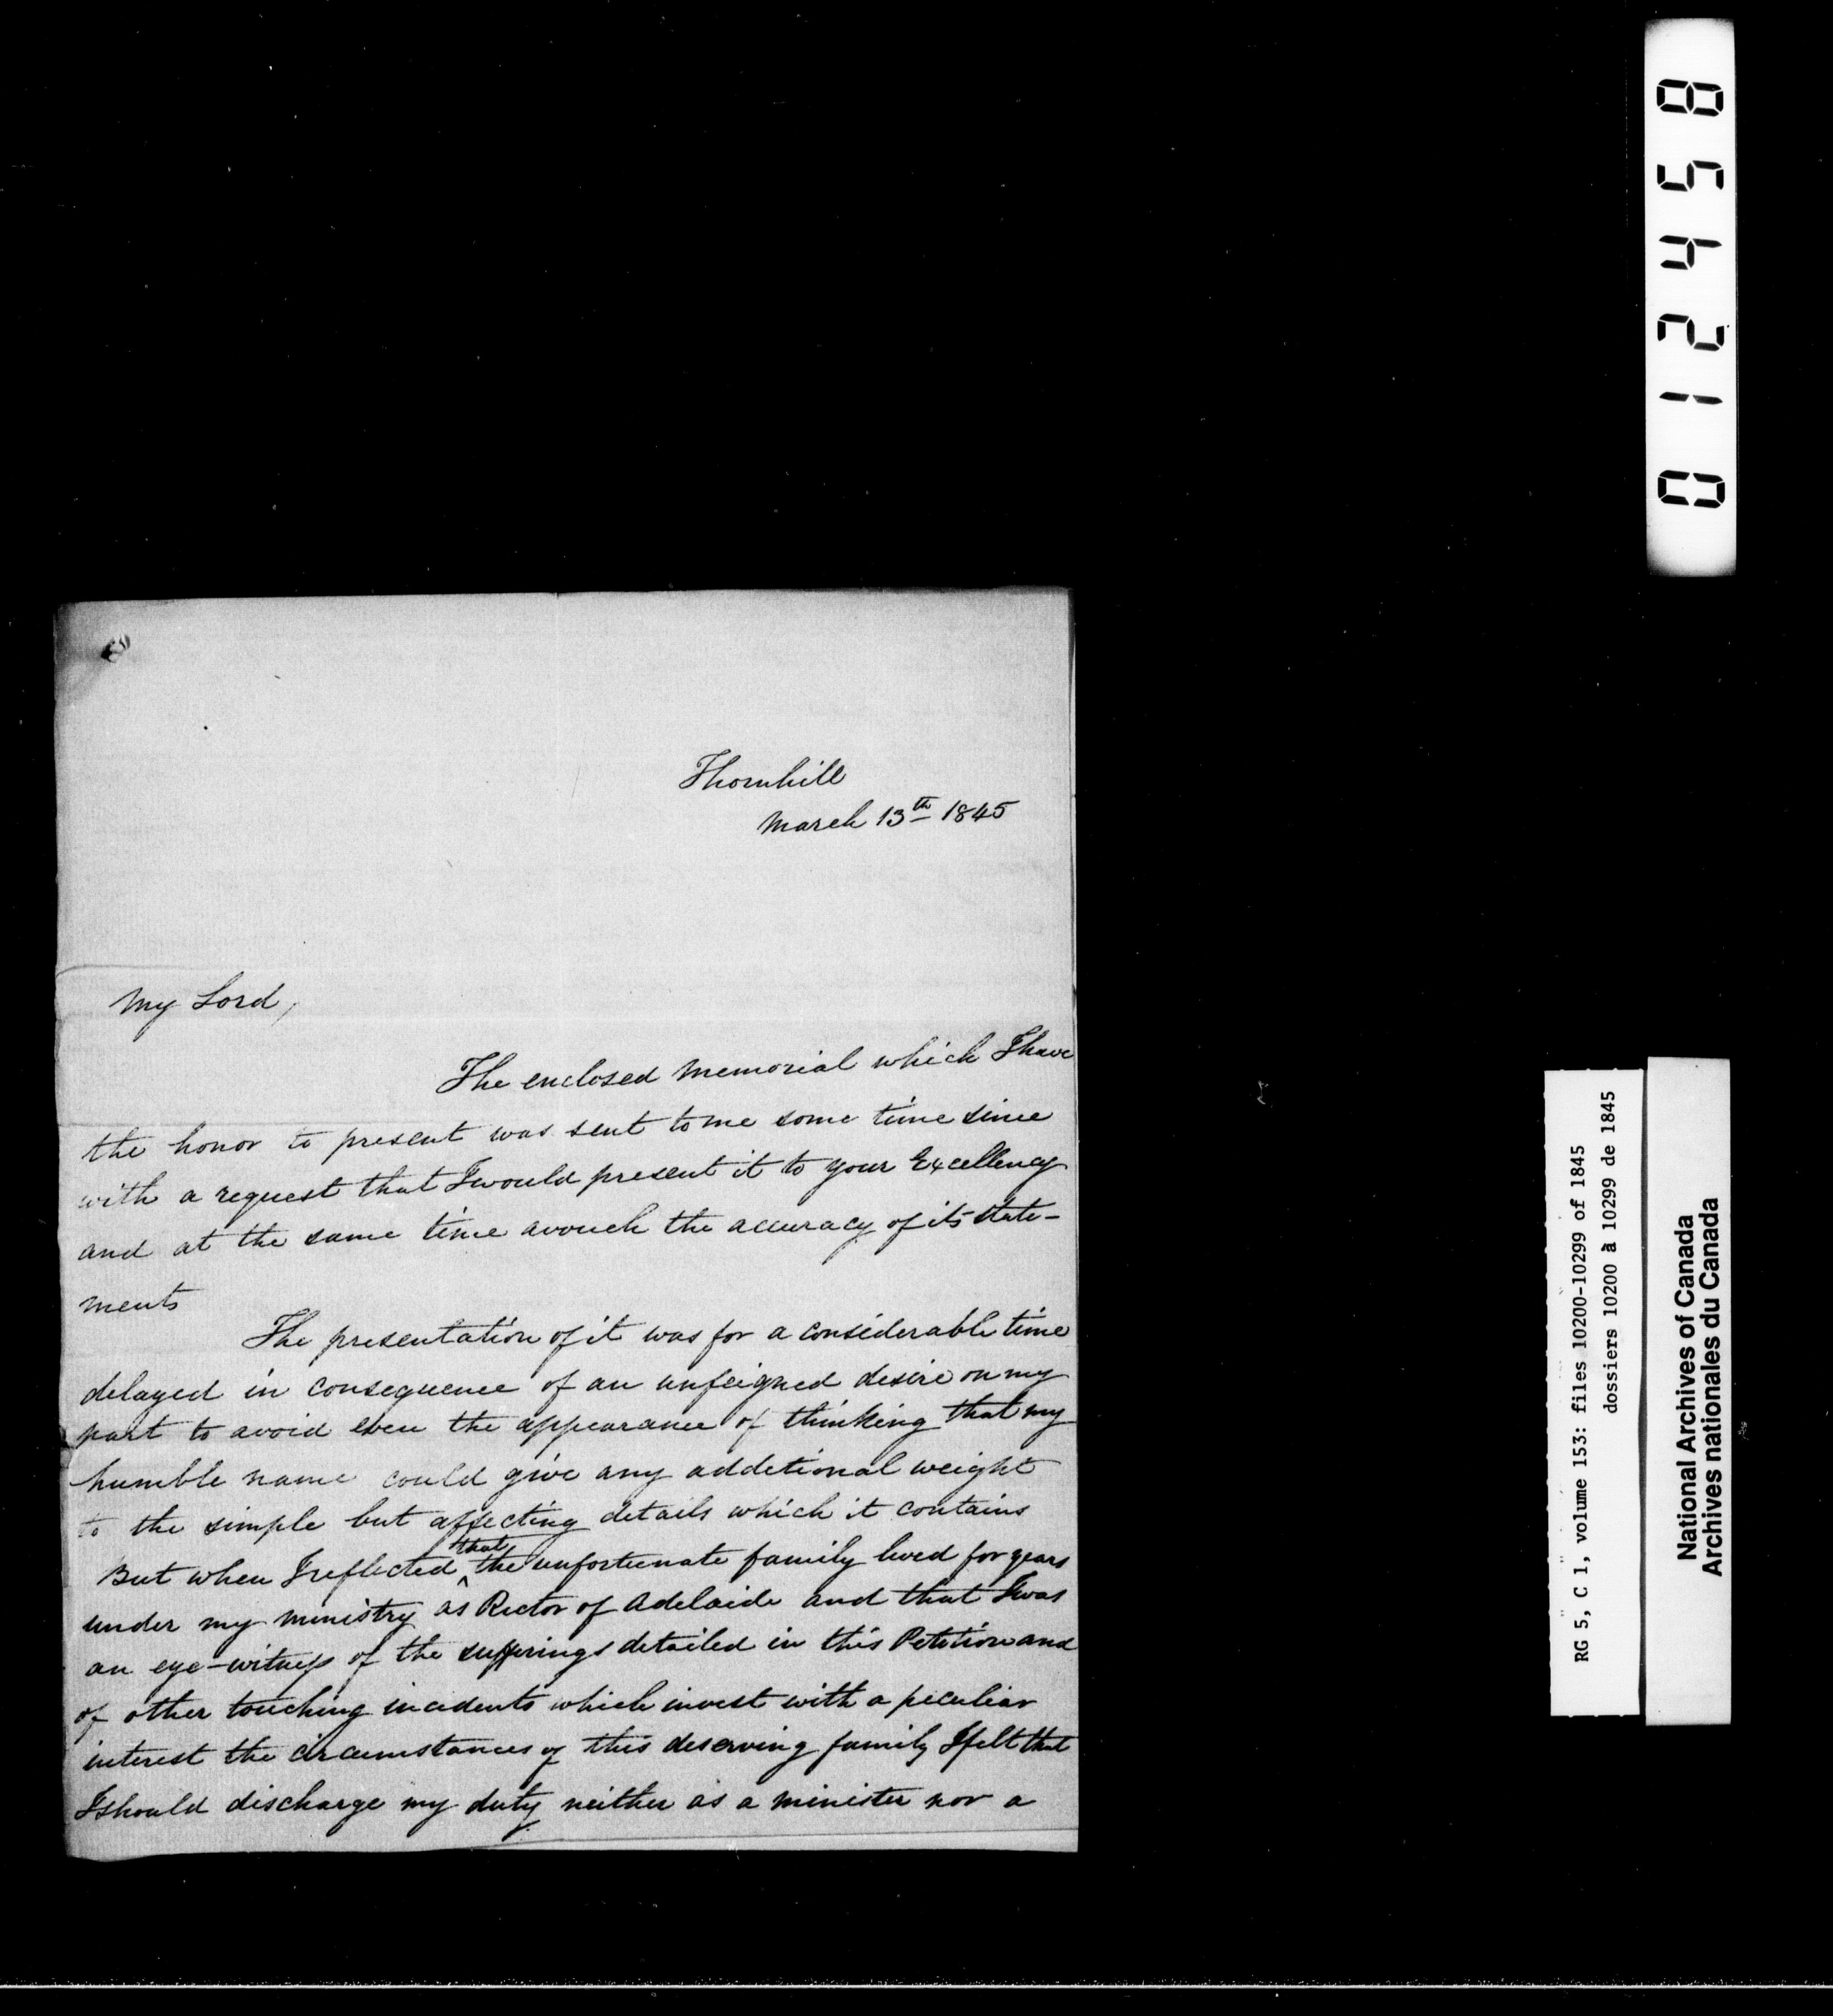 Thornhill
March 13th 1845
My Lord,
The enclosed Memorial which I have
the honor to present was sent to me some time since
with a request that I would present it to your Excellency
and at the same time avouch the accuracy of its state-
ments
The presentation of it was for a considerable time
delayed in consequence of an unfeigned desire on my
part to avoid even the appearance of thinking that my
humble name could give any additional weight
to the simple but affecting details which it contains
But when I reflected that the unfortunate family lived for years
under my ministry as Rector of Adelaide and that I was
an eye-witness of the sufferings detailed in this Petition and
of other touching incidents which invest with a peculiar
interest the circumstances of this deserving family I felt that
I should discharge my duty neither as a minister nor a
012458
RG 5, C 1, volume 153: files 10200-10299 of 1845
dossiers 10200 à 10299 de 1845
National Archives of Canada
Archives nationales du Canada